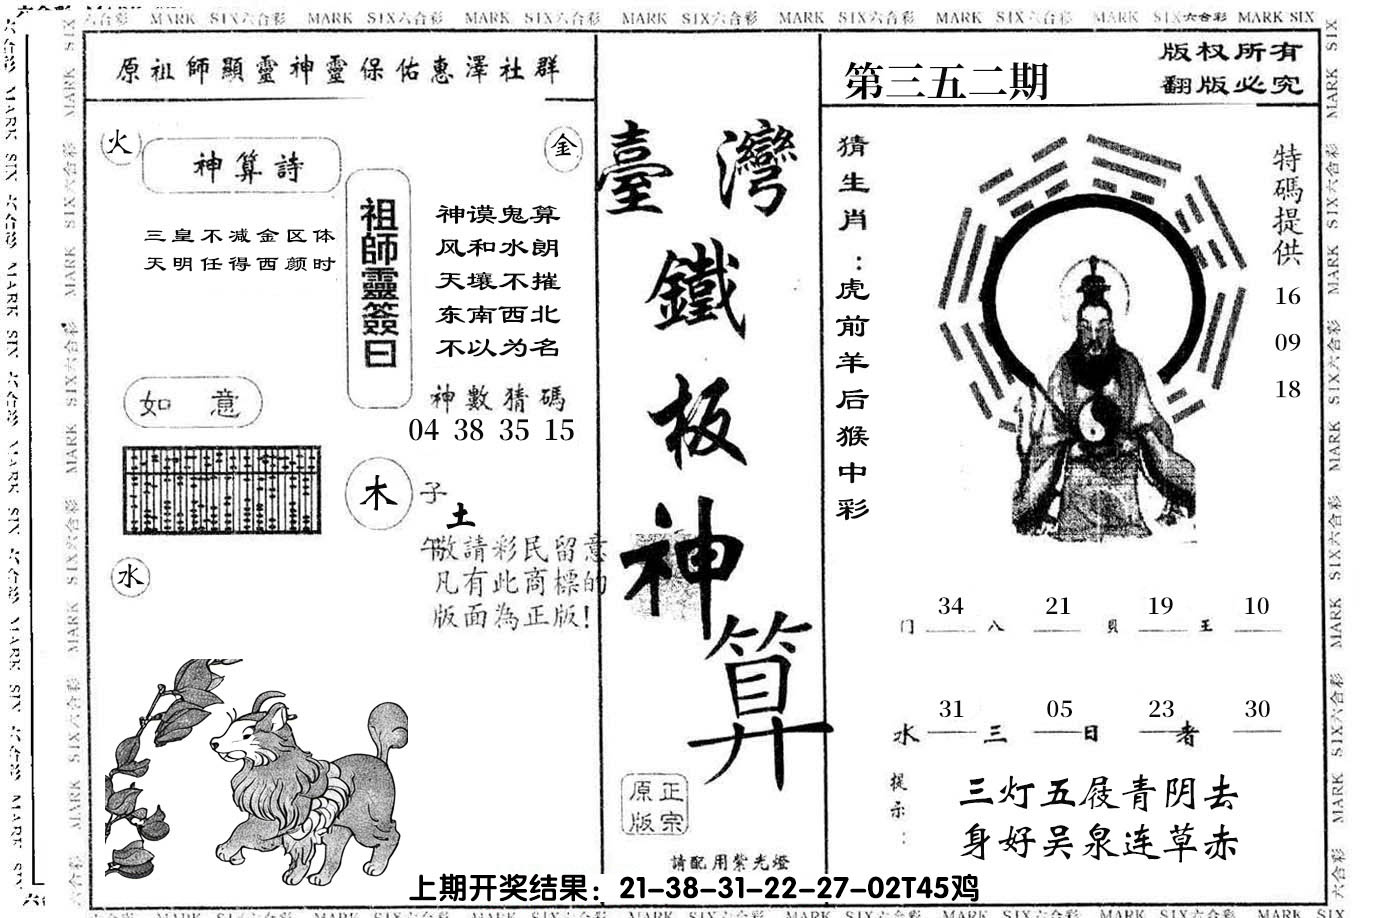 MARK SIX六合彩 MARK SIX六合彩 MARK SIX六合彩 MARK SIX六合彩 MARK SIX六合彩 MARK SIX六合彩 MARK SIX六合彩 MARK SIX
原祖師顯靈神靈保佑惠澤社群
火
神算詩
金
三皇不减金区体
天明任得西颜时
祖師靈簽曰
神谟鬼算
风和水朗
天壤不摧
东南西北
不以为名
神數猜碼
04 38 35 15
如 意
木
子
土
午
水
敬請彩民留意
凡有此商標的
版面為正版!
臺灣
鐵
板
神
算
正宗
原版
請配用紫光燈
第三五二期
版权所有
翻版必究
猜生肖:虎前羊后猴中彩
特碼提供
16
09
18
34 21 19 10
门 八 貝 王
31 05 23 30
水 三 日 者
提示:
三灯五屐青阴去
身好吴泉连草赤
上期开奖结果：21-38-31-22-27-02T45鸡